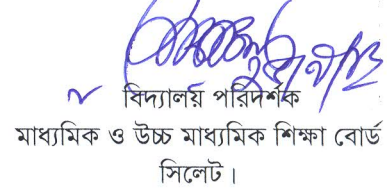 বিদ্যালয় পরিদর্শক
মাধ্যমিক ও উচ্চ মাধ্যমিক শিক্ষা বোর্ড
সিলেট।